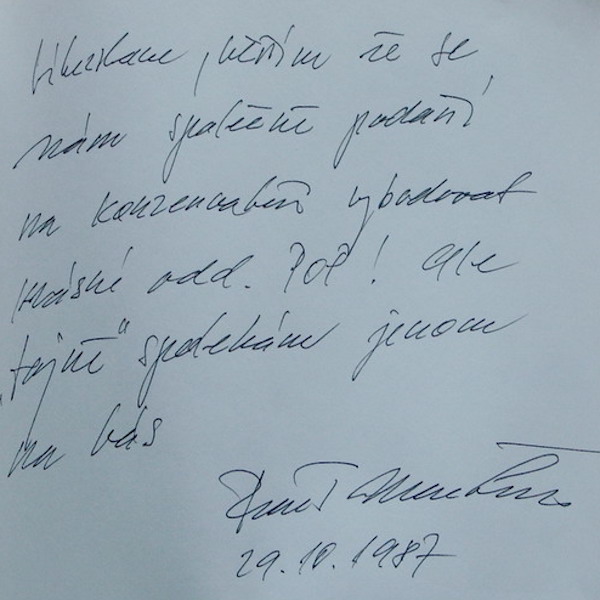 , věřím že se
nám společně podaří
na konzervatoři vybudovat
krásné odd. POP! Ale
„tajně“ spoléhám jenom
na Vás
29.10.1987